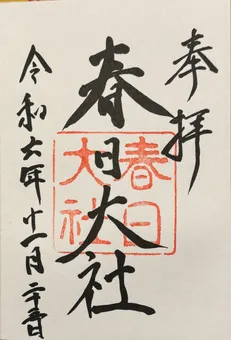 奉拝
春日大社
春日
大社
令和六年十一月二十日